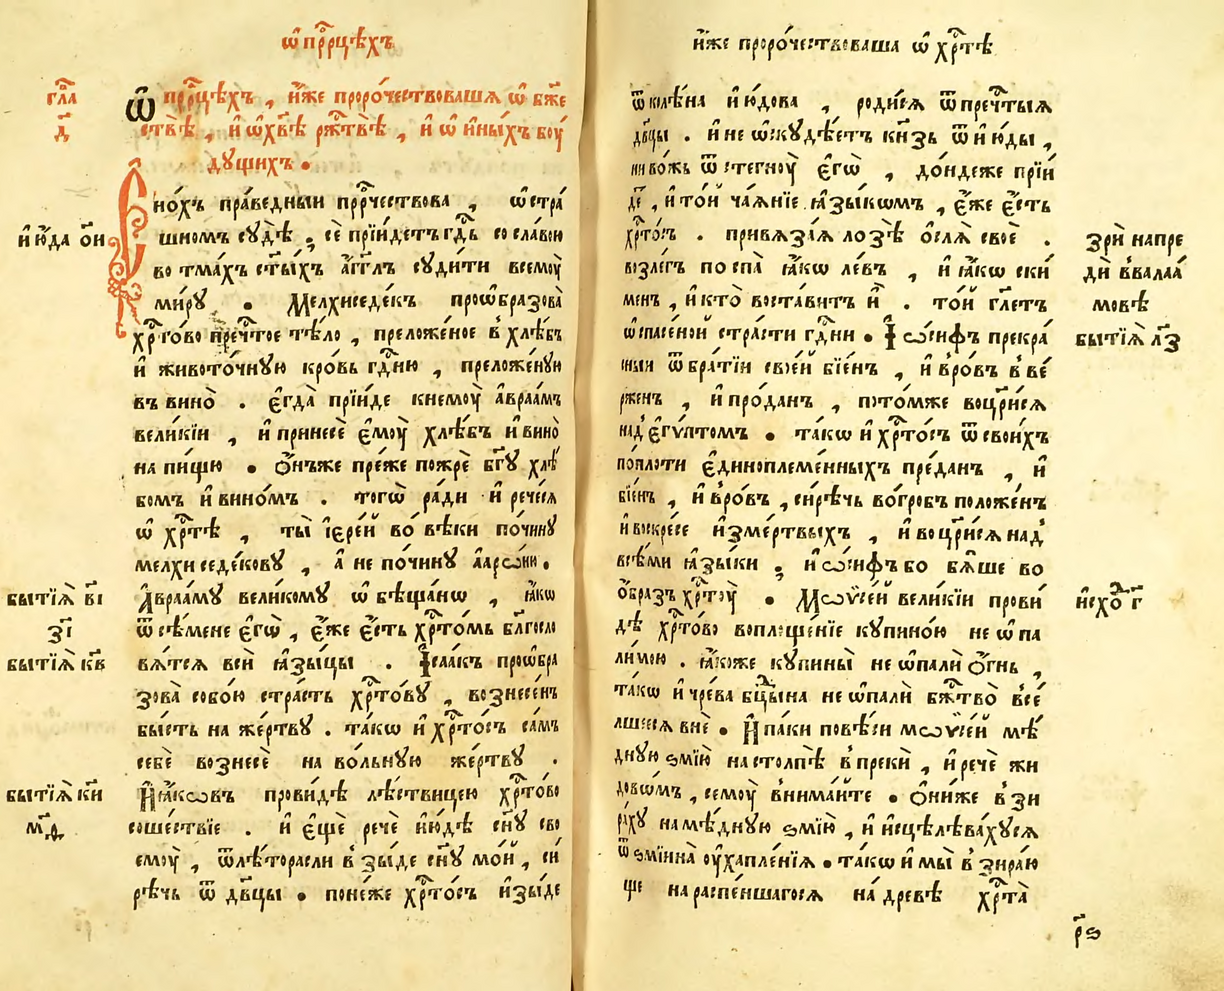 ѡ҆ прⷪ҇рцѣхъ
гла҇
д҃
Ѡ҆ прⷪ҇рцѣхъ , и҆́же проро́чествовашѧ ѡ҆ бж҃е
ствѣ̀ , и҆ ѡ҆ хв҃ѣ ржⷭ҇твѣ̀ , и҆ ѡ҆ и҆ны́хъ бꙋ
дꙋщихъ .
Є҆но́хъ пра́ведныи прⷪ҇рчествова , ѡ҆ стра́
и҆ ію҆́да ѻ҆́н
шномъ сꙋдѣ̀ , сѐ прїи́детъ гдⷭ҇ь со славою
во тма́хъ ст҃ы́хъ а҆́гг҃лъ сꙋди́ти всемꙋ̀
ми́рꙋ . Мелхиседе́къ проѡ҆бразова̀
хрⷭ҇то́во пречⷭ҇тое тѣ́ло , преложе́ное в̾ хлѣ́бъ
и҆ живото́чнꙋю кро́вь гдⷭ҇ню , преложе́нꙋю
въ вино̀ . є҆гда̀ прїи́де кнемꙋ̀ а҆враа́мъ
вели́кїи , и҆ принесѐ є҆мꙋ̀ хлѣ́бъ и҆ вино̀
на пи́щю . ѻ҆́нъже пре́же пожрѐ бг҃ꙋ хлѣ́
бомъ и҆ вино́мъ . тогѡ̀ ра́ди и҆ рече́сѧ
ѡ҆ хрⷭ҇тѣ̀ , ты̀ і҆ере́й во́ вѣки по́ чинꙋ
мелхиседе́ковꙋ , а҆ не по́ чинꙋ а҆арѡ́ни .
бытїѧ̀ в҃і
А҆враа́мꙋ вели́комꙋ ѡ҆бѣща́нѡ , ꙗ҆́кѡ
з҃і
ѿ сѣ́мене є҆гѡ̀ , є҆́же є҆́сть хрⷭ҇то́мь блг҃осло
бытїѧ̀ к҃в
вѧ́тсѧ всѝ ꙗ҆зы́цы . І҆саа́къ проѡ҆бра
зова̀ собо́ю стра́сть хрⷭ҇то́вꙋ , вознесе́нъ
бы́сть на же́ртвꙋ . та́кѡ и҆ хрⷭ҇то́съ са́мъ
себѐ вознесѐ на во́льнꙋю же́ртвꙋ .
бытїѧ̀ к҃и
И҆ꙗ҆́кѡвъ прови́дѣ лѣ́ствицею хрⷭ҇то́во
м҃ѳ
соше́ствїе . и҆ є҆щѐ речѐ и҆ю́дѣ сн҃ꙋ сво
емꙋ̀ , ѿ лѣ́торасли в̾зы́де сн҃ꙋ мо́й , си́
рѣчь ѿ дв҃цы . поне́же хрⷭ҇то́съ и҆зы́де
и҆́же проро́чествоваша ѡ҆ хрⷭ҇тѣ̀
ѿ колѣ́на и҆ю́дова , роди́сѧ ѿ пречⷭ҇тыѧ
дв҃цы . и҆ не ѡ҆скꙋдѣ́етъ кнѧ́зь ѿ и҆ю́ды ,
ни во́жь ѿ стегнꙋ̀ є҆гѡ̀ , до́ндеже прїи́
де , и҆ то́й ча́ѧнїе ꙗ҆зы́кѡмъ , є҆́же є҆́сть
хрⷭ҇то́съ . привѧза́ѧ ло́зѣ ѻ҆слѧ̀ своѐ .
зрѝ напре
возле́гъ поспа̀ ꙗ҆́кѡ ле́въ , и҆ ꙗ҆́кѡ ски́
дѝ в̾ вала́а
менъ , и҆ кто̀ воста́витъ и҆̀ . то́й гл҃етъ
мовѣ
ѡ҆ спасе́ной стра́сти гдⷭ҇ни . І҆ѡ́сифъ прекра́
бытїѧ̀ л҃з
ныи ѿ бра́тїи свое́й бїе́нъ , и҆ в̾ ро́въ в̾ве́
рженъ , и҆ про́данъ , пото́мже воцр҃и́сѧ
над̾ є҆гѵ́птомъ . та́кѡ и҆ хрⷭ҇то́съ ѿ свои́хъ
попло́ти є҆диноплеме́нныхъ пре́данъ , и҆
бїе́нъ , и҆ в̾ ро́въ , си́рѣчь во́гробъ положе́нъ
и҆ воскре́се и҆зме́ртвыхъ , и҆ воцр҃и́сѧ над̾
все́ми ꙗ҆зы́ки ; и҆ѡ́сифъ бо бѧ́ше во
ѻ҆́бразъ хрⷭ҇тꙋ̀ . Мѡѵсе́й вели́кїи прови́
и҆схо́ⷣ г҃
дѣ хрⷭ҇то́во воплоще́нїе кꙋпино́ю не ѡ҆па
ли́мою . ꙗ҆́коже кꙋпины̀ не ѡ҆палѝ ѻ҆́гнь ,
та́кѡ и҆ чре́ва бцⷣы́на не ѡ҆палѝ бж҃тво̀ всѐ
лшеесѧ внѐ . И҆ па́ки пове́си мѡѵсе́й мѣ́
днꙋю ѕмїю̀ на столпѣ̀ в̾прекѝ , и҆ речѐ жи
до́вѡмъ , семꙋ̀ внима́йте . ѻ҆ни́же в̾зи
ра́хꙋ на мѣ́днꙋю ѕмїю̀ , и҆ и҆сцѣлѣва́хꙋсѧ
ѿ ѕми́ина ᲂу҆хапле́нїѧ . та́кѡ и҆ мы̀ в̾зираю
ще на распе́ншагосѧ на́ древѣ хрⷭ҇та̀
р҃ѕ